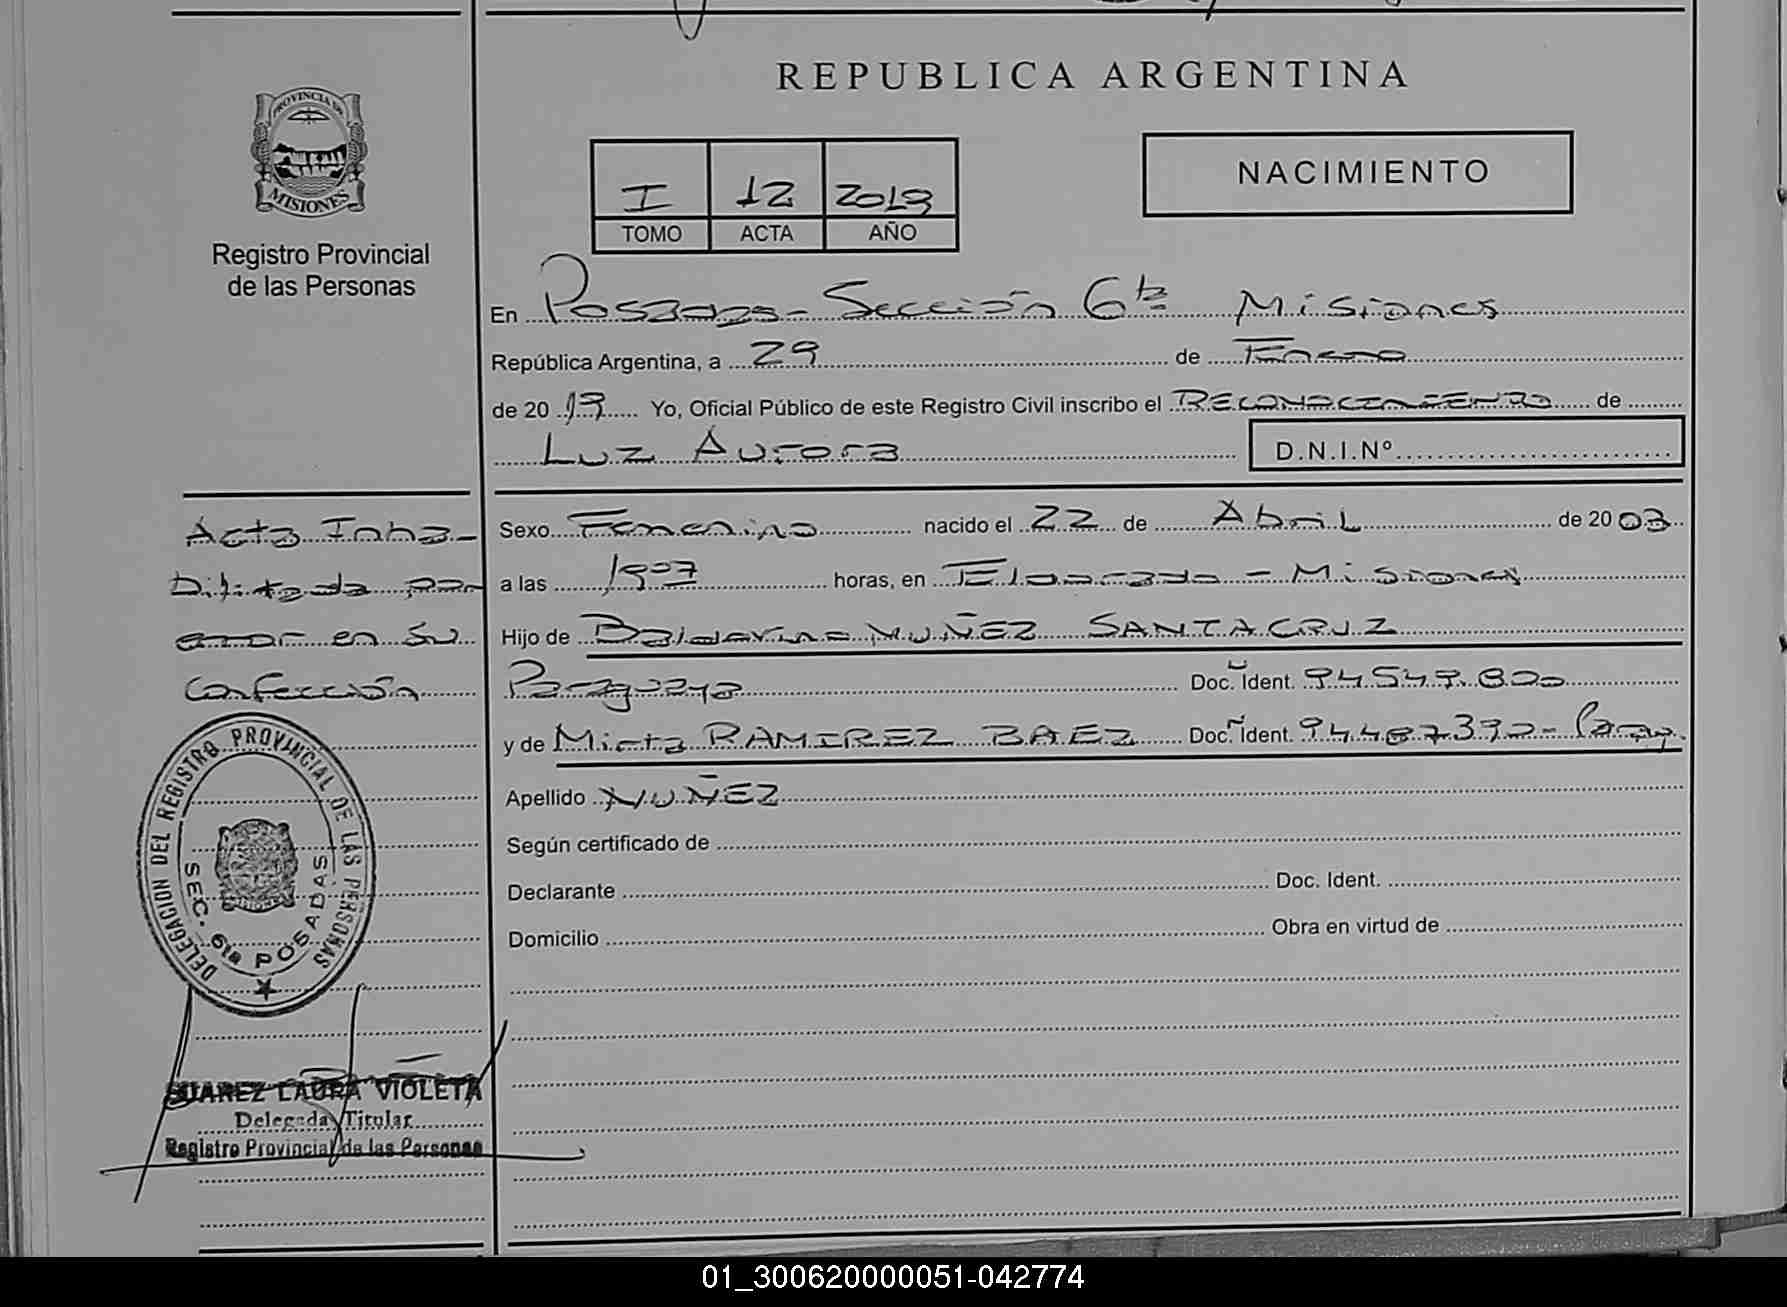 REPUBLICA ARGENTINA
PROVINCIA DE
MISIONES
Registro Provincial
de las Personas
I 12 2019
TOMO ACTA AÑO
NACIMIENTO
En Posadas - Sección 6ta Misiones
República Argentina, a 29 de Enero
de 20 19 Yo, Oficial Público de este Registro Civil inscribo el RECONOCIMIENTO de
Luz Aurora D.N.I.Nº
Sexo Femenino nacido el 22 de Abril de 20 03
a las 1907 horas, en Eldorado - Misiones
Hijo de NUÑEZ SANTACRUZ
Paraguaya Doc. Ident. Nº 94.549.800
y de Mirta RAMIREZ BAEZ Doc. Ident. Nº 94.487.390 - Parag.
Apellido NUÑEZ
Según certificado de
Declarante Doc. Ident.
Domicilio Obra en virtud de
Acta Inha-
bilitada por
error en su
Confección
DELEGACION DEL REGISTRO PROVINCIAL DE LAS PERSONAS
SEC. 6ta POSADAS
SUAREZ LAURA VIOLETA
Delegada Titular
Registro Provincial de las Personas
01_300620000051-042774